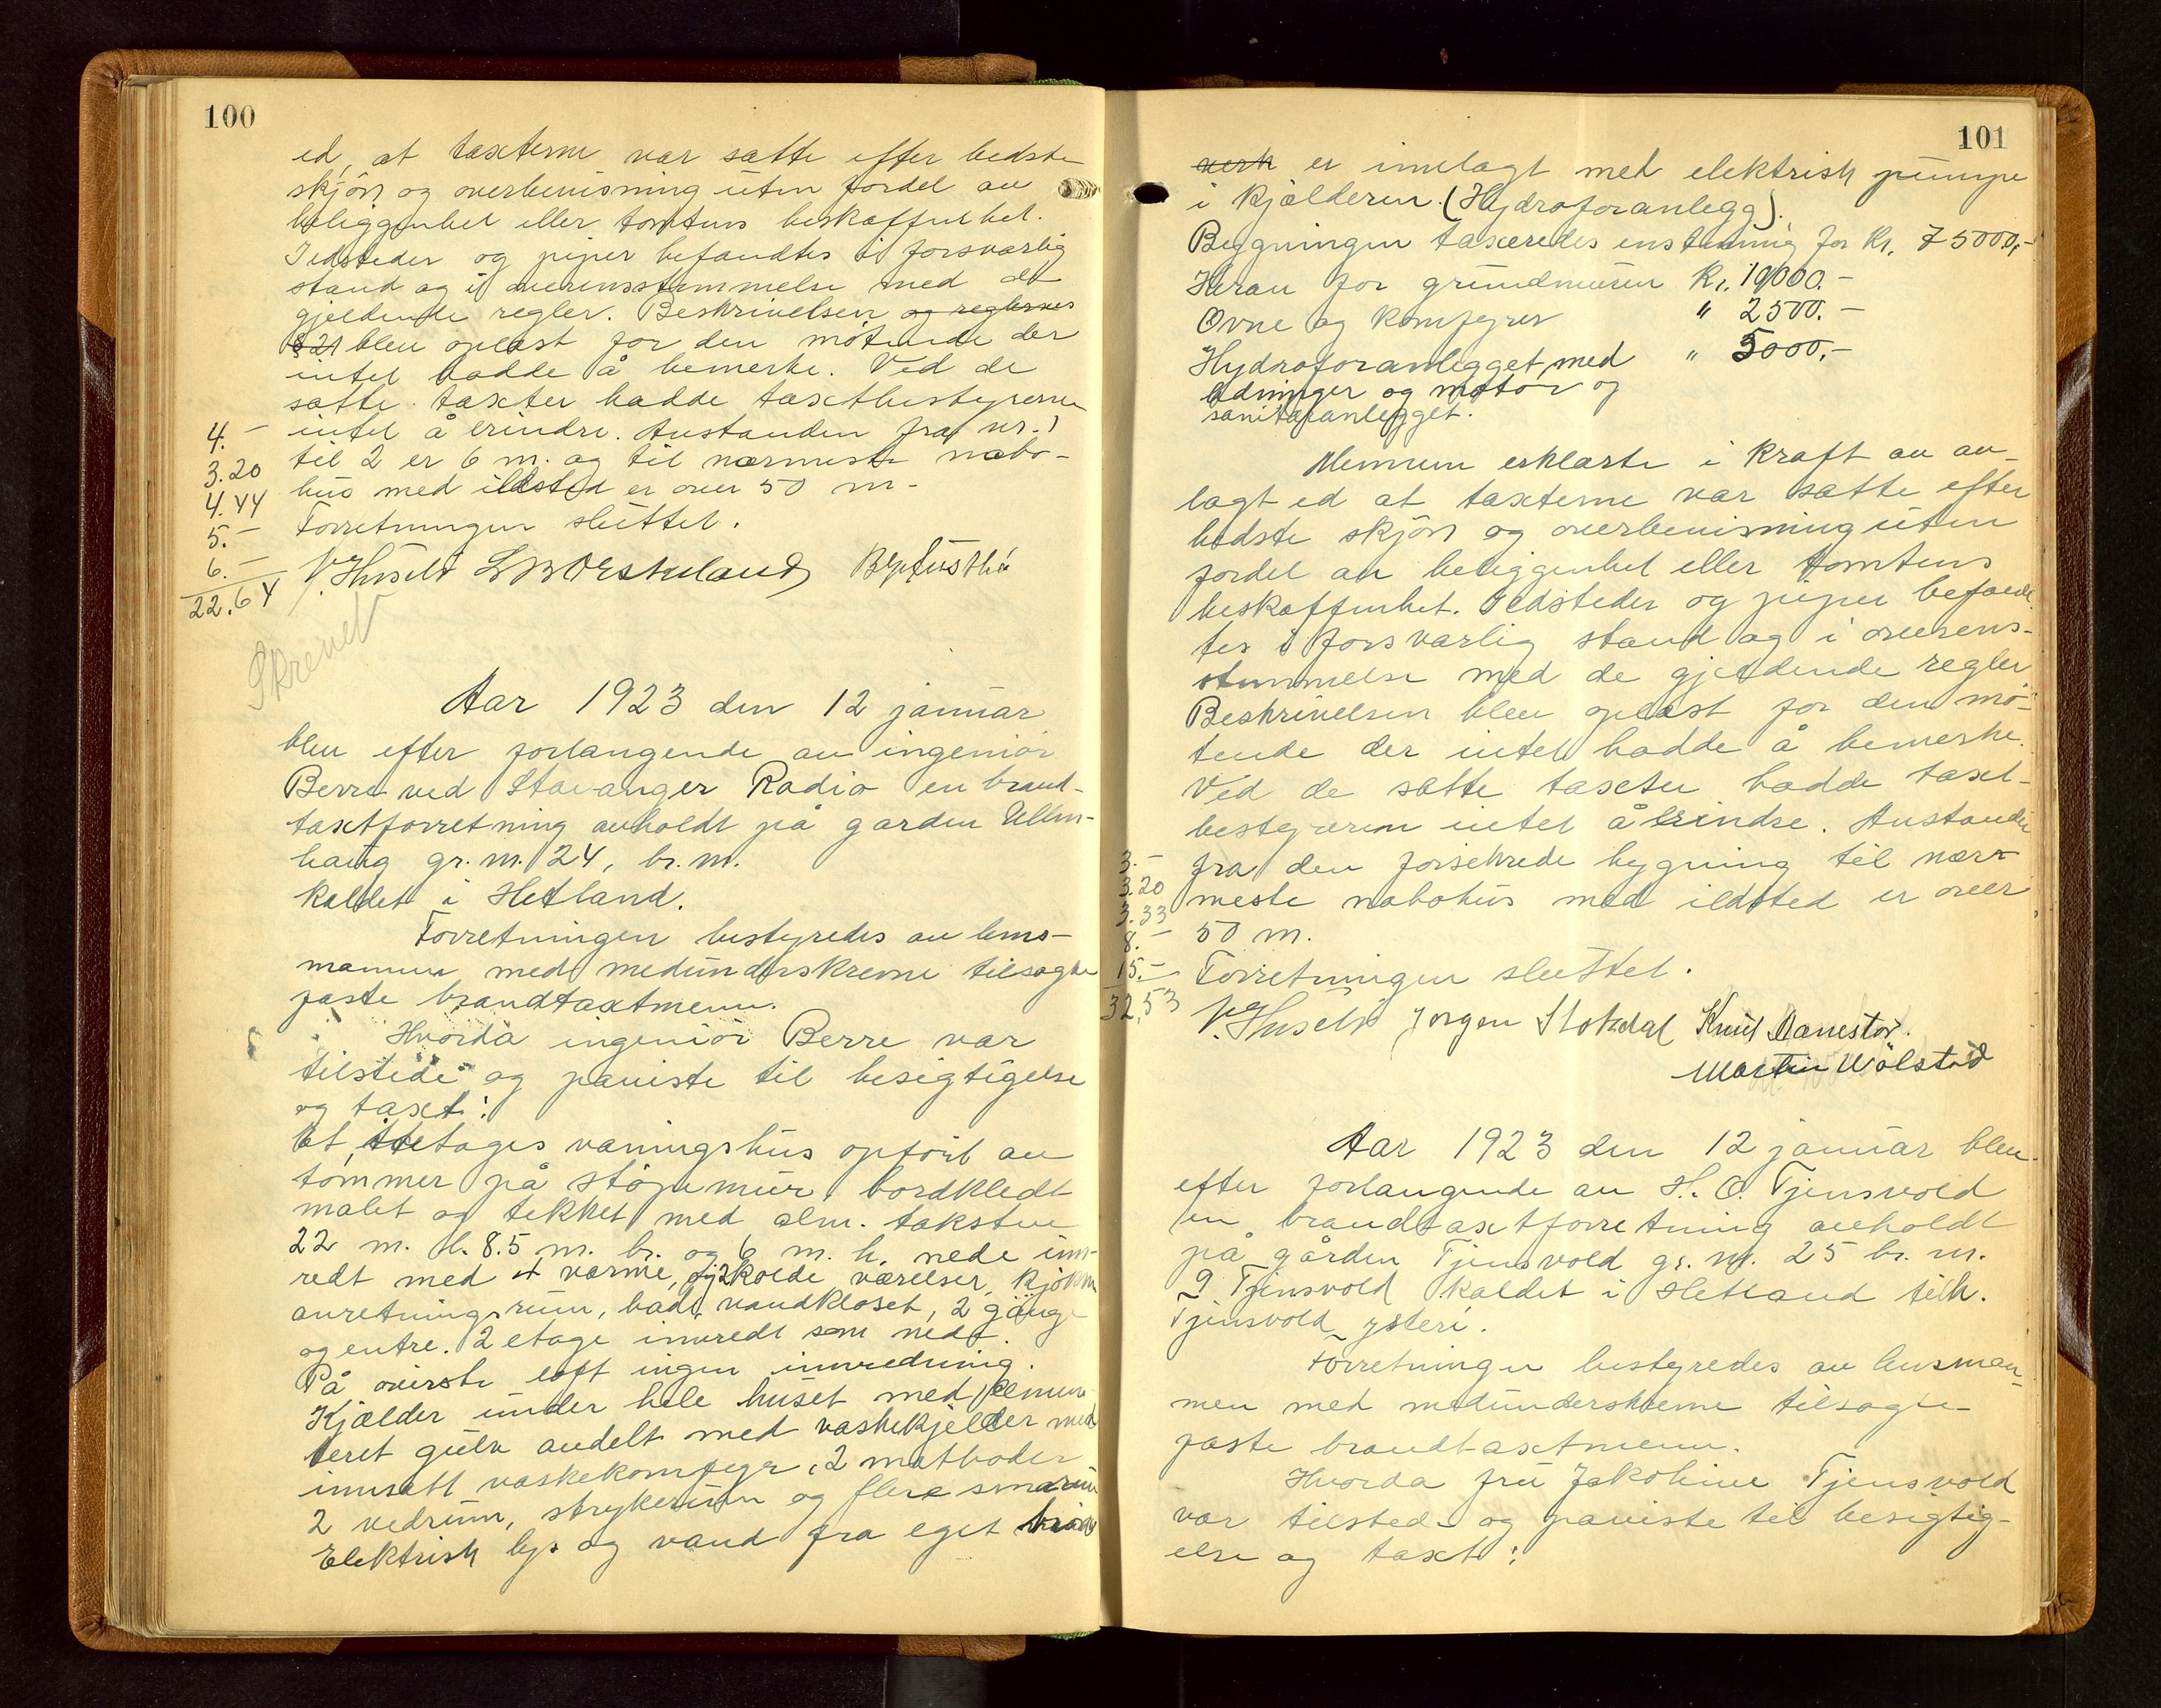 100
ed, at taxterne var satte efter bedste
skjön og overbevisning uten fordel av
beliggenhet eller tomtens beskaffenhet.
Ildsteder og piper befandtes i forsvarlig
stand og i overensstemmelse med de
gjeldende regler. Beskrivelsen og reglernes
§ 21 blev oplæst for den mötende der
intet hadde å bemerke. Ved de
satte taxter hadde taxtbestyreren
intet å erindre. Avstanden fra nr. 1
til 2 er 6 m. og til nærmeste nabo-
hus med ildsted er over 50 m.
Forretningen sluttet.
4.-
3.20
4.44
5.-
6.-
22.64
Skrevet
Aar 1923 den 12 januar
blev efter forlangende av ingeniör
Berre ved Stavanger Radio en brand-
taxtforretning avholdt på garden Ullen-
haug gr. nr. 24, br. nr.
kaldet i Hetland.
Forretningen bestyredes av lens-
mannen med medunderskrevne tilsagte
faste brandtaxtmenn.
Hvorda ingeniör Berre var
tilstede og paviste til besigtigelse
og taxt:
Et, toetages våningshus opfört av
tömmer på stöpemur, bordkledt
malet og tekket med alm. taksten
22 m. l. 8.5 m. br. og 6 m. h. nede inn-
redt med 4 varme, og 2 kolde værelser, kjökken
anretningsrum, bad, vandkloset, 2 gange
og entre. 2 etage innredt som nede.
På överste loft ingen innredning.
Kjælder under hele huset med semen-
teret gulv avdelt med vaskekjelder med
innsatt vaskekomfyr, 2 matboder
2 vedrum, strykerum og flere smarum
Elektrisk lys og vand fra eget brönn
101
verk er innlagt med elektrisk pumpe
i kjælderen. (Hydroforanlegg).
Bygningen taxeredes enstemmig for Kr. 75000,-
Herav for grundmuren Kr. 10000.-
Ovne og Komfyrer " 2500.-
Hydroforanlegget med " 5000,-
ledninger og motor og
sanitæranlegget.
Mennene erklærte i kraft av av-
lagt ed at taxterne var satte efter
bedste skjön og overbevisning uten
fordel av beliggenhet eller tomtens
beskaffenhet. Ildsteder og piper befand-
tes i forsvarlig stand og i overens-
stemmelse med de gjeldende regler.
Beskrivelsen blev oplæst for den mö-
tende der intet hadde å bemerke.
Ved de satte taxter hadde taxt-
bestyreren intet å erindre. Avstanden
fra den forsikrede bygning til nær-
meste nabohus med ildsted er over
50 m.
Forretningen sluttet.
3.-
3.20
3.33
8.-
15.-
32,53
Jorgen Stokdal Knut
Martin Wölstad
Aar 1923 den 12 januar blev
efter forlangende av H. O. Tjensvold
en brandtaxtforretning avholdt
på gården Tjensvold gr. nr. 25 br. nr.
9 Tjensvold kaldet i Hetland tilh.
Tjensvold ysteri.
Forretningen bestyredes av lensman-
nen med medunderskrevne tilsagte
faste brandtaxtmenn.
Hvorda fru Jakobine Tjensvold
var tilstede og paviste til besigtig-
else og taxt: